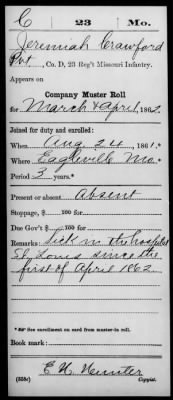 C 23 Mo.
Jeremiah Crawford
Pvt, Co. D, 23 Reg't Missouri Infantry.
Appears on
Company Muster Roll
for March & April, 1862.
Joined for duty and enrolled:
When Aug 24, 1861.
Where Eagleville Mo.
Period 3 years.*
Present or absent Absent
Stoppage, $ 100 for
Due Gov't $ 100 for
Remarks: Sick in the hospital
St Louis since the
first of April 1862.
* See enrollment on card from muster-in roll.
Book mark:
E H Hunter
(358c) Copyist.